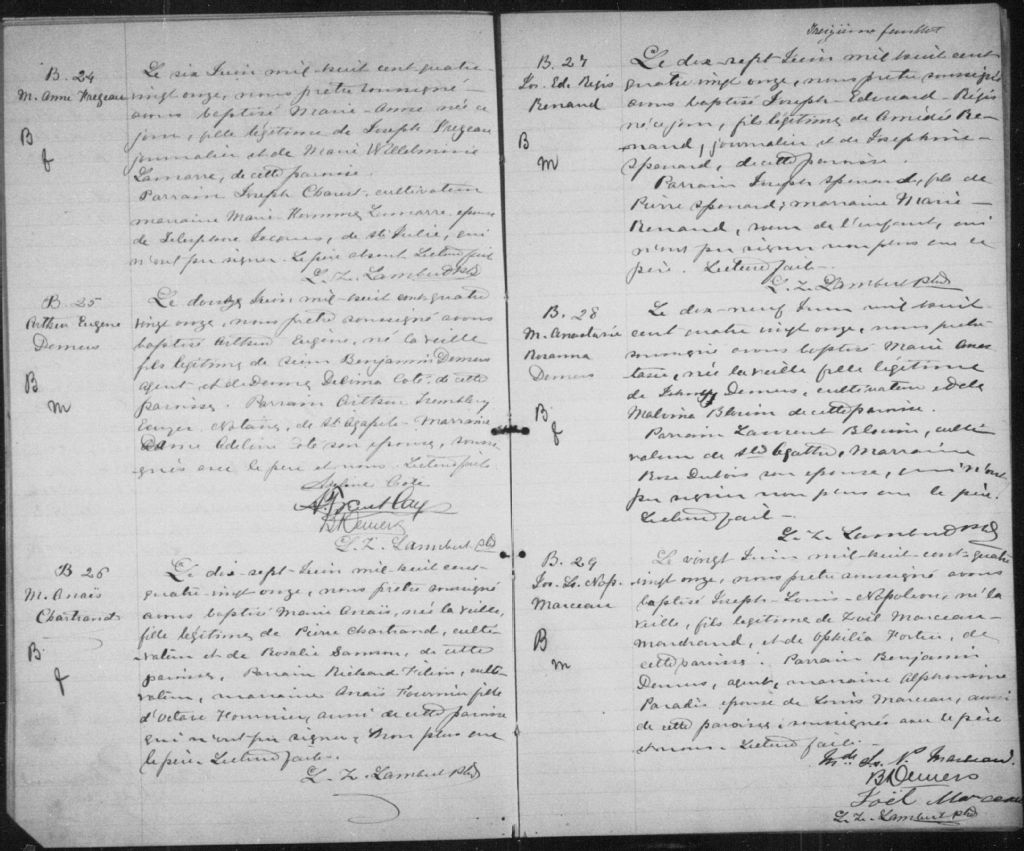 B. 24
M. Anne Mageau
B
f
Le six Juin mil-huit cent-quatre-
vingt onze, nous prêtre soussigné
avons baptisé Marie-Anne née ce
jour, fille légitime de Joseph Mageau
journalier et de Marie Willelminie
Lamarre, de cette paroisse.
Parrain Joseph cultivateur
marraine Marie Lamarre épouse
de Télesphore Jacques, de Ste Julie, qui
n'ont pu signer. Le père absent. Lecture faite
L. Z. Lambert ptre
B. 25
Arthur Eugène
Demers
B
M
Le douze Juin mil-huit cent quatre
vingt onze, nous prêtre soussigné avons
baptisé Arthur Eugène, né la veille
fils légitime de sieur Benjamin Demers
agent, et de Dame Délima Coté, de cette
paroisse. Parrain Arthur Trembley
Ecuyer Notaire, de St Agapit. Marraine
Dame Adeline Coté son épouse, soussi-
gnés avec le père et nous. Lecture faite.
Coté
A. Tremblay
B Demers
L. Z. Lambert ptre
B 26
M. Anaïs
Chartrand
B
f
Le dix-sept Juin mil-huit cent-
quatre-vingt onze, nous prêtre soussigné
avons baptisé Marie Anaïs, née la veille,
fille légitime de Pierre Chartrand, culti-
vateur et de Rosalie Samson, de cette
paroisse, Parrain Richard culti-
vateur, marraine Anaïs Fournier fille
d'Octave Fournier, aussi de cette paroisse
qui n'ont pu signer, non plus que
le père. Lecture faite.
L. Z. Lambert ptre
Treizième feuillet
B. 27
Jos. Ed. Régis
Renaud
B
M
Le dix-sept Juin mil huit cent
quatre vingt onze, nous prêtre soussigné
avons baptisé Joseph-Edouard-Régis
né ce jour, fils légitime de Amédée Re-
naud, journalier et de Josephine
Spenard, de cette paroisse.
Parrain Joseph Spenard, fils de
Pierre Spenard; marraine Marie
Renaud, soeur de l'enfant, qui
n'ont pu signer non plus que le
père. Lecture faite.
L. Z. Lambert ptre
B. 28
M. Anastasie
Rosanna
Demers
B
f
Le dix-neuf Juin mil huit
cent quatre vingt onze, nous prêtre
soussigné avons baptisé Marie Anas-
tasie, née la veille fille légitime
de Johnny Demers, cultivateur et de
Malvina Blouin de cette paroisse.
Parrain Laurent Blouin, culti-
vateur de Ste Agathe, Marraine
Rose Dubois son épouse, qui n'ont
pu signer non plus que le père.
Lecture faite.
L. Z. Lambert ptre
B. 29
Jos. Ls. Nap.
Marceau
B
M
Le vingt Juin mil-huit-cent-quatre
vingt onze, nous prêtre soussigné avons
baptisé Joseph-Louis-Napoléon, né la
veille, fils légitime de Zoël Marceau
marchand, et de Ophélia Fortier, de
cette paroisse. Parrain Benjamin
Demers, agent, marraine Alphonsine
Paradis épouse de Louis Marceau, aussi
de cette paroisse, soussignés avec le père
et nous. Lecture faite.
Mde Ls. N. Marceau
B Demers
Zoël Marceau
L. Z. Lambert ptre